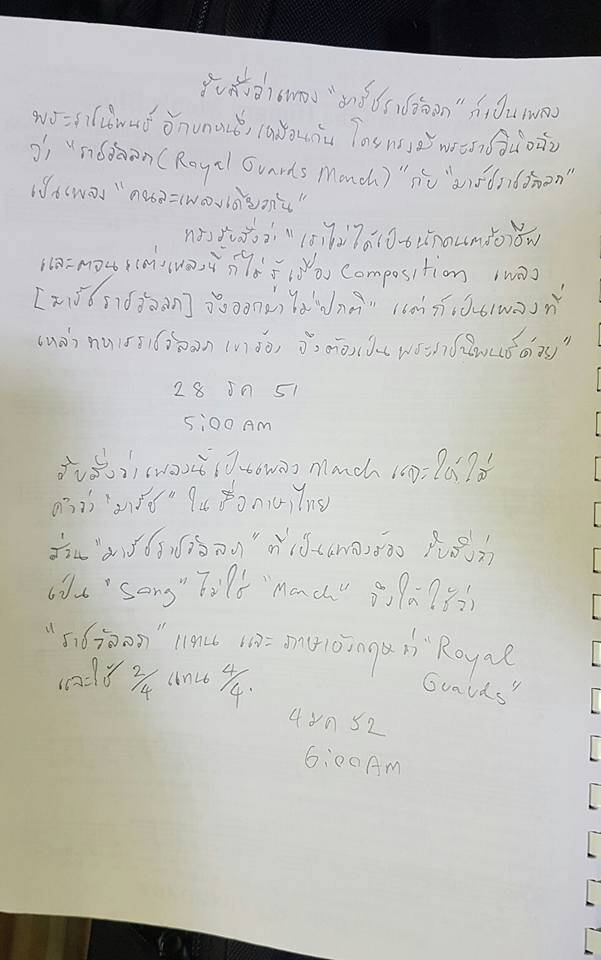 รับสั่งว่าเพลง "มาร์ชราชวัลลภ" ก็เป็นเพลง
พระราชนิพนธ์ อีกบทหนึ่งเหมือนกัน โดยทรงมีพระราชวินิจฉัย
ว่า "ราชวัลลภ (Royal Guards March)" กับ "มาร์ชราชวัลลภ"
เป็นเพลง "คนละเพลงเดียวกัน"
ทรงรับสั่งว่า "เราไม่ได้เป็นนักดนตรีอาชีพ
และตอนแต่งเพลงนี้ ก็ไม่รู้เรื่อง Composition เพลง
[มาร์ชราชวัลลภ] จึงออกมาไม่ "ปกติ" แต่ก็เป็นเพลงที่
เหล่าทหารราชวัลลภ เขาร้อง จึงต้องเป็นพระราชนิพนธ์ด้วย"
28 ธค 51
5:00 AM
รับสั่งว่าเพลงนี้เป็นเพลง March และให้ใส่
คำว่า "มาร์ช" ในชื่อภาษาไทย
ส่วน "มาร์ชราชวัลลภ" ที่เป็นเพลงร้อง รับสั่งว่า
เป็น "Song" ไม่ใช่ "March" จึงให้ใช้ว่า
"ราชวัลลภ" แทน และ ภาษาอังกฤษว่า "Royal
Guards"
และใช้ 2/4 แทน 4/4.
4 มค 52
6:00 AM